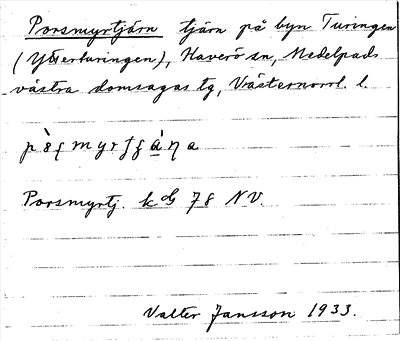 Porsmyrtjärn tjärn på byn Turingen
(Ytterturingen), Haverö sn, Medelpads
västra domsagas tg, Västernorrl. l.
Porsmyrtj. kbl 78 NV.
Valter Jansson 1933.